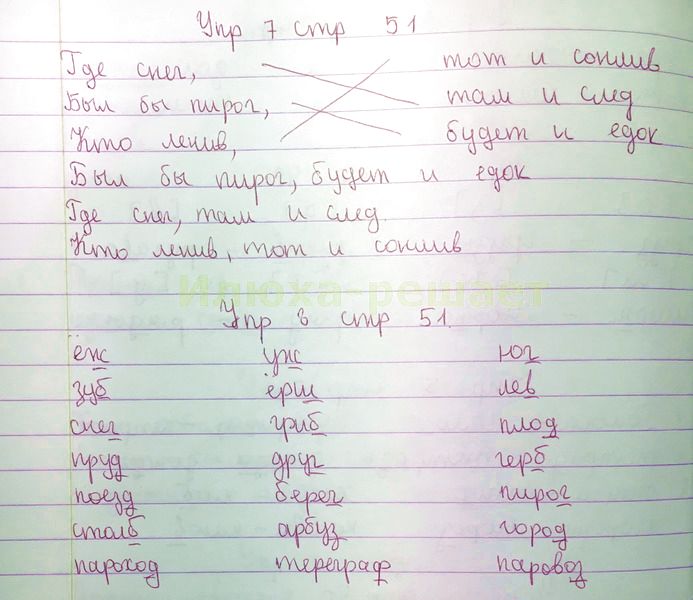 Упр 7 стр 51
Где снег, тот и сонлив
Был бы пирог, там и след
Кто ленив, будет и едок
Был бы пирог, будет и едок
Где снег, там и след.
Кто ленив, тот и сонлив
Илюха-решает
Упр 8 стр 51.
ёж уж юг
зуб ёрш лев
снег гриб плод
пруд друг герб
поезд берег пирог
столб арбуз город
пароход тереграф паровоз